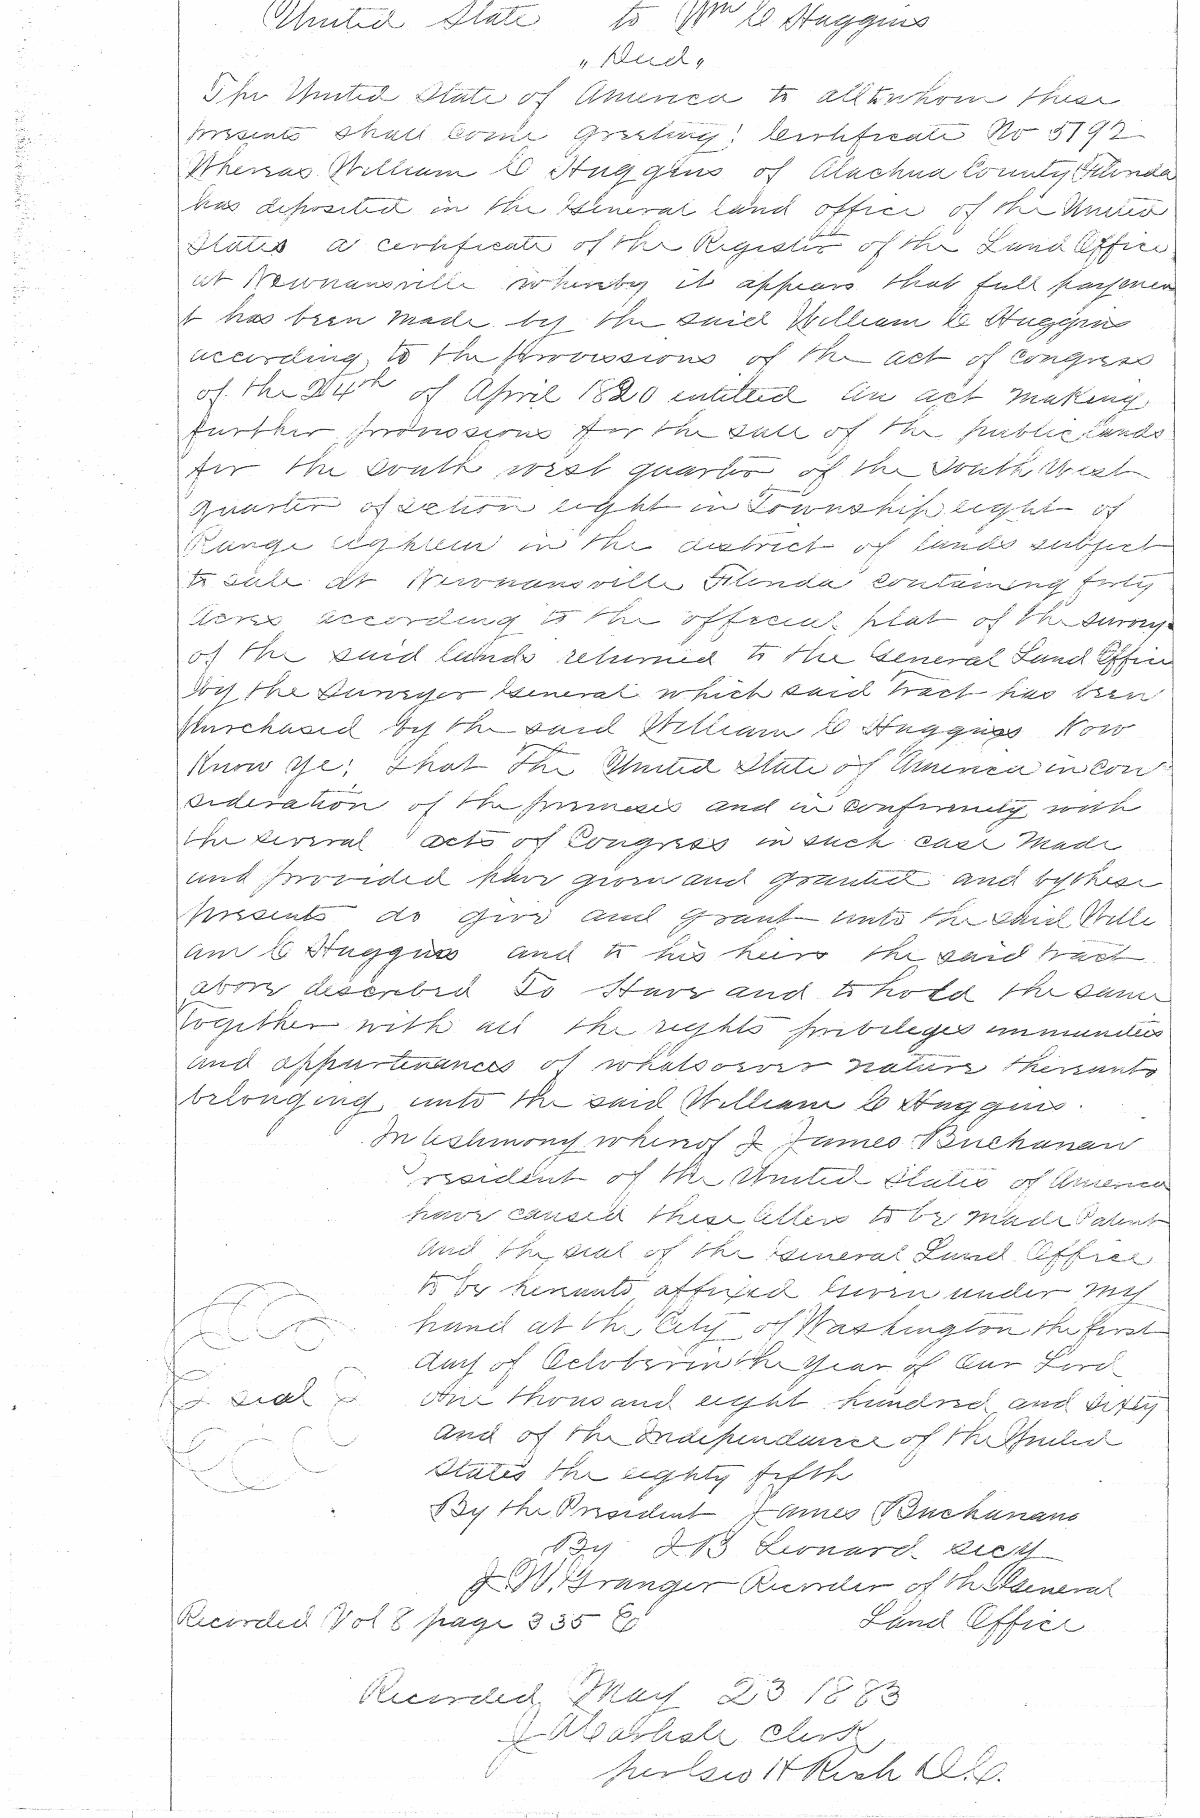 United State to Wm C Huggins
"Deed"
The United State of America to all to whom these
presents shall come greeting: Certificate No 5192
Whereas William C Huggins of Alachua County Florida
has deposited in the General land office of the United
States a certificate of the Register of the Land Office
at Newnansville whereby it appears that full paymen
t has been made by the said William C Huggins
according to the provissions of the act of congress
of the 24th of April 1820 entitled an act making
further provissions for the sale of the public lands
for the south west quarter of the South West
quarter of section eight in Township eight of
Range eighteen in the district of lands subject
to sale at Newnansville Florida containing forty
Acres according to the official plat of the survey
of the said lands returned to the General Land Office
by the Surveyor General which said tract has been
purchased by the said William C Huggins Now
Know ye: that The United State of America in con
sideration of the premises and in conformity with
the several acts of Congress in such case made
and provided have given and granted and by these
presents do give and grant unto the said Willi
am C Huggins and to his heirs the said tract
above described To Have and to hold the same
together with all the rights privileges immunities
and appurtenances of whatsoever nature thereunto
belonging unto the said William C Huggins.
In testimony whereof I James Buchanan
President of the United States of America
have caused these letters to be made Patent
and the seal of the General Land Office
to be hereunto affixed Given under my
hand at the City of Washington the first
day of October in the year of Our Lord
seal One thousand eight hundred and sixty
and of the Independance of the United
States the eighty fifth
By the President James Buchanans
By J B Leonard secy
J. W. Granger Recorder of the General
Recorded Vol 8 page 335 Land Office
Recorded May 23 1883
J A Carlisle Clerk
per Geo H Rich D.C.